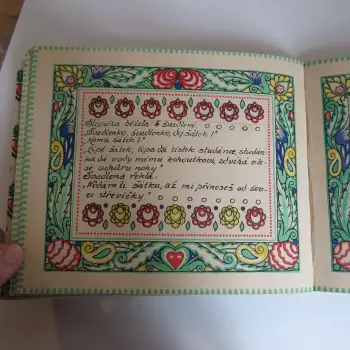 Slepička běžela k švadleně.
"Švadlenko, švadlenko, dej šátek!"
"Komu šátek?"
"Lípě šátek, lípa dá lístek studánce, studán
ka dá vody mému kohoutkovi, zdvihá ole
se vzhůru nohy."
Švadlena řekla:
"Nedám ti šátku, až mi přineseš od šev
ce střevíčky."